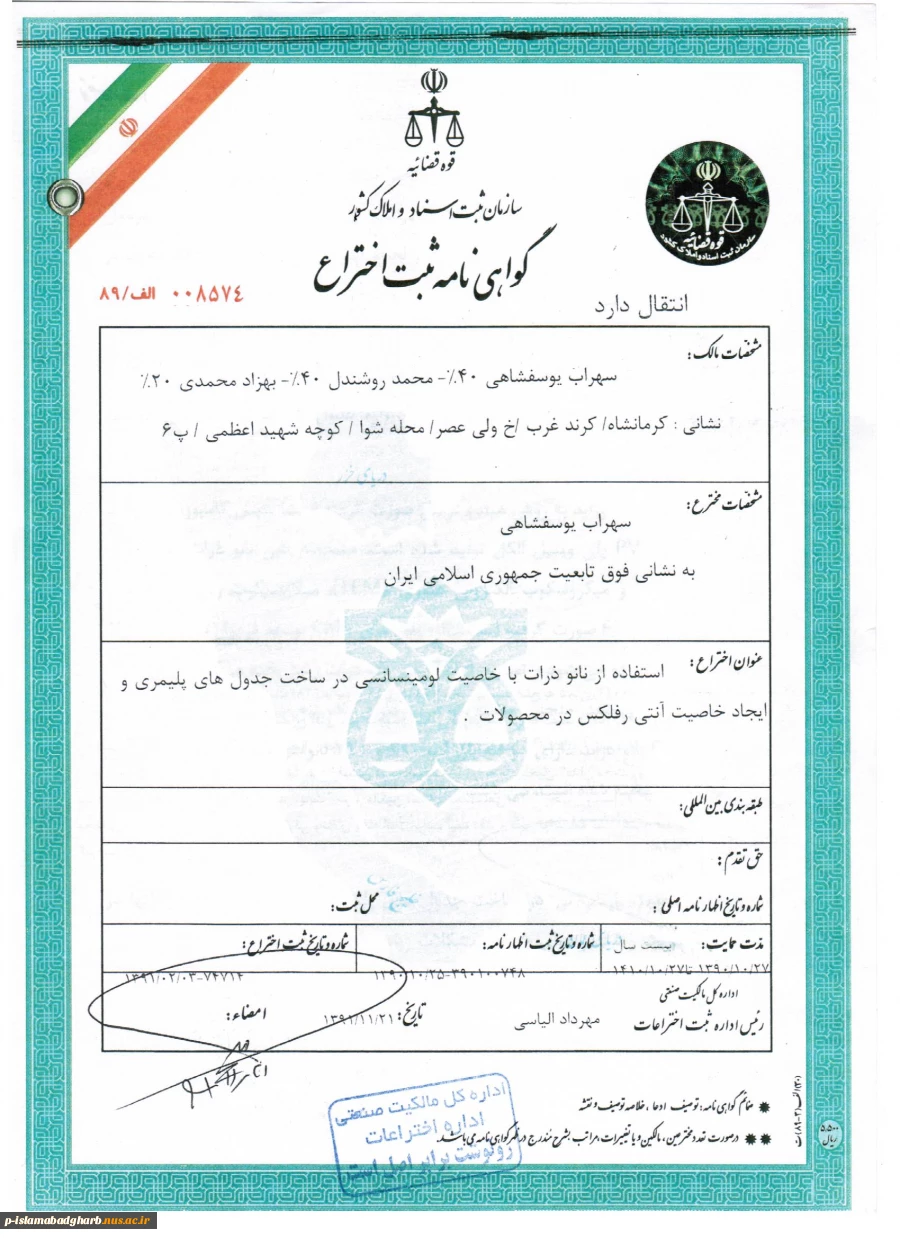 قوه قضائیه
سازمان ثبت اسناد و املاک کشور
گواهی نامه ثبت اختراع
قوه قضائیه
سازمان ثبت اسناد و املاک کشور
۰۰۸۵۷۴ الف/۸۹
انتقال دارد
مشخصات مالک:
سهراب یوسفشاهی ۴۰٪- محمد روشندل ۴۰٪- بهزاد محمدی ۲۰٪
نشانی : کرمانشاه/ کرند غرب /خ ولی عصر/ محله شوا / کوچه شهید اعظمی / پ۶
مشخصات مخترع:
سهراب یوسفشاهی
به نشانی فوق تابعیت جمهوری اسلامی ایران
عنوان اختراع: استفاده از نانو ذرات با خاصیت لومینسانسی در ساخت جدول های پلیمری و
ایجاد خاصیت آنتی رفلکس در محصولات .
طبقه بندی بین المللی:
حق تقدم:
شماره و تاریخ اظهارنامه اصلی: محل ثبت:
مدت حمایت: بیست سال شماره و تاریخ ثبت اظهارنامه: شماره و تاریخ ثبت اختراع:
۱۳۹۰/۱۰/۲۷ تا ۱۴۱۰/۱۰/۲۷ ۱۳۹۰/۱۰/۲۵-۳۹۰۱۰۰۷۴۸ ۱۳۹۱/۰۲/۰۳-۷۴۷۱۴
اداره کل مالکیت صنعتی
رئیس اداره ثبت اختراعات مهرداد الیاسی تاریخ: ۱۳۹۱/۱۱/۲۱ امضاء:
اداره کل مالکیت صنعتی
اداره اختراعات
رونوشت برابر اصل است
ضمائم گواهی نامه: توصیف ادعا ، خلاصه توصیف و نقشه
درصورت تعدد مخترعین، مالکین و یا تغییرات، مراتب بشرح مندرج در ظهر گواهی نامه می باشد.
۵,۵۰۰ ریال
p-islamabadgharb.nus.ac.ir